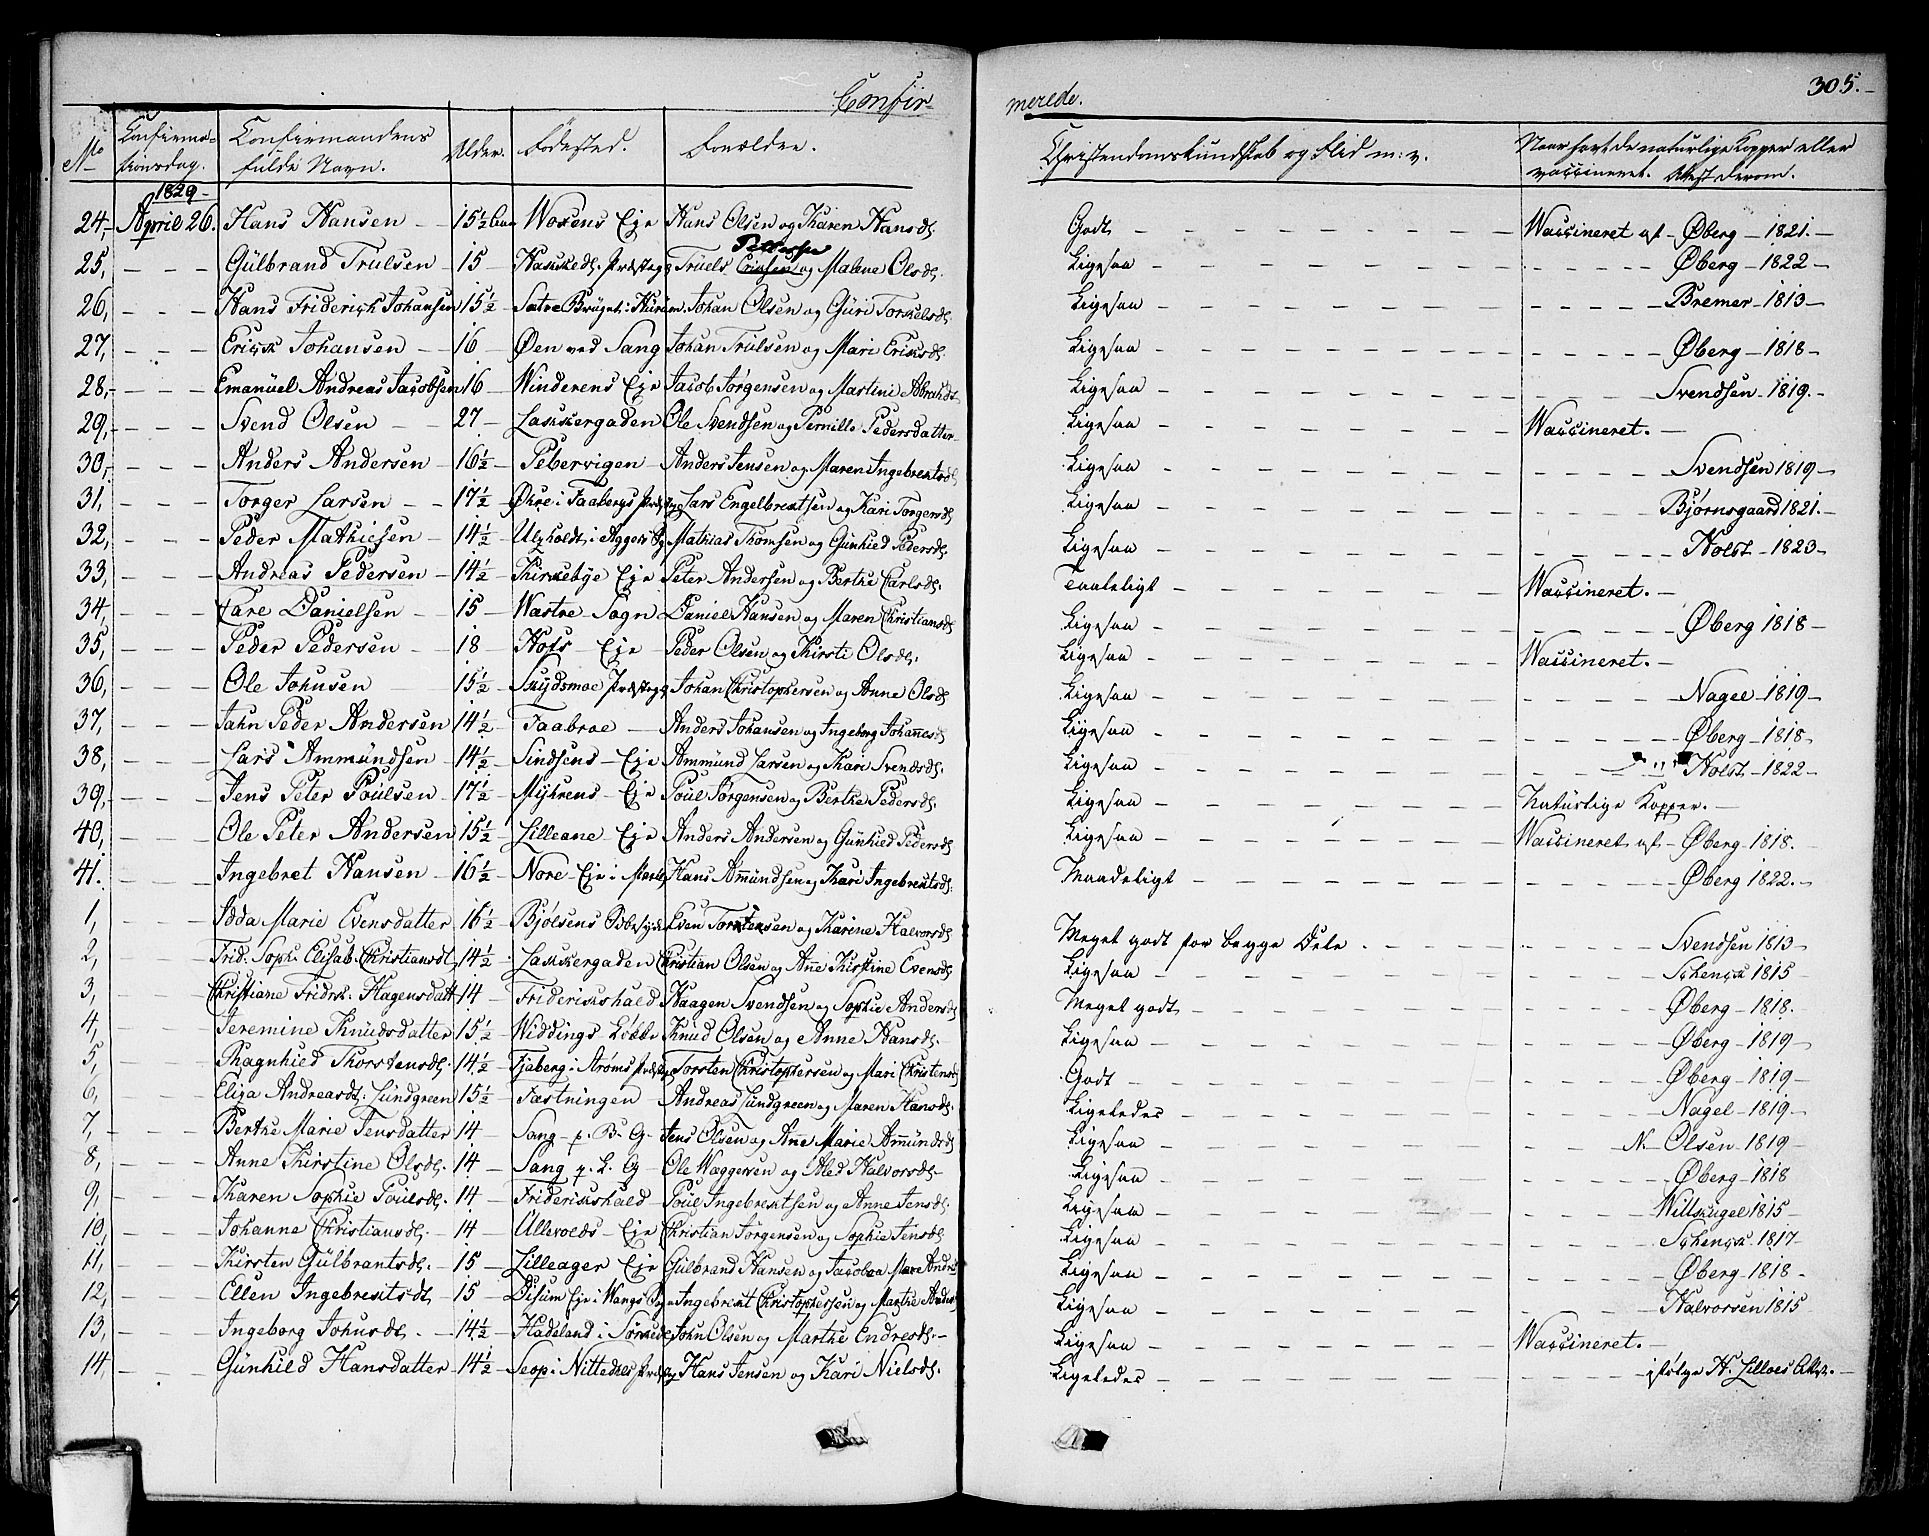 Confir- merede. 305.
No Confirmationsdag. Confirmandens fulde Navn. Alder. Födested. Forældre. Christendomskundskab og Flid m: v. Naar havt de naturlige Kopper eller vaccineret. Attest derom.
1829
24, April 26. Hans Hansen 15½ Woxens Eje Hans Olsen og Karen Hansd. Godt Waccineret af Øberg 1821.
25, Gulbrand Trulsen 15 Præsteg Truels Ericsen Pettersen og Malene Olsd. Ligesaa Øberg 1822
26, Hans Friderich Johansen 15½ Sætre Bruget i Hurum. Johan Olsen og Guri Torkelsd. Ligesaa Bremer 1813
27, Erick Johansen 16 Øen ved Sang Johan Trulsen og Mari Eriksd. Ligesaa Øberg 1818
28, Emanuel Andreas Jacobsen 16 Winderens Eje Jacob Jørgensen og Martine Ligesaa Svendsen 1819.
29, Svend Olsen 27 Lakkergaden Ole Svendsen og Pernille Pedersdatter Ligesaa Waccineret.
30, Anders Andersen 16½ Pebervigen Anders Jensen og Maren Ingebretsd. Ligesaa Svendsen 1819
31, Torger Larsen 17½ i Faabergs Præsteg Lars Engelbrektsen og Kari Torgersd. Ligesaa Bjørnsgaard 1821.
32, Peder Mathiesen 14½ Ulsholdt i Aggers S. Mathias Thomsen og Gunhild Pedersd. Ligesaa Holst 1823
33, Andreas Pedersen 14½ Kirkebye Eje Peter Andersen og Berthe Carlsd. Taaleligt Waccineret.
34, Tare Danielsen 15 Westre Sogn Daniel Hansen og Maren Christiansd. Ligesaa Øberg 1818
35, Peder Pedersen 18 Hofs Eje Peder Olsen og Kirsti Olsd. Ligesaa Waccineret.
36, Ole Johnsen 15½ Skydsmoe Præsteg Johan Christophersen og Anne Olsd. Ligesaa Nagel 1819
37, Jahn Peder Andersen 14½ Faabroe Anders Johansen og Ingeborg Johannesd. Ligesaa Øberg 1818
38, Lars Ammundsen 14½ Sindsens Eje Ammund Larsen og Kari Svendsd. Ligesaa Holst 1822
39, Jens Peter Poulsen 17½ Myhrens Eje Poul Jørgensen og Berthe Pedersd. Ligesaa Naturlige Kopper.
40, Ole Peter Andersen 15½ Lilleane Eje Anders Andersen og Gunhild Pedersd. Ligesaa Waccineret af Øberg 1818.
41. Ingebret Hansen 16½ Nore Eje i Hans Ammundsen og Kari Ingebretsd. Maadeligt Øberg 1822.
1, Adda Marie Evensdatter 16½ Bjølsens Even Torstensen og Karine Halvorsd. Meget godt for begge Dele Svendsen 1813
2, Frid: Soph: Elisab. Christiansd. 14½ Lakkergaden Christian Olsen og Ane Kirstine Evensd. Ligesaa Schenck 1815
3, Christiane Fridrk. Hagensdatt. 14 Frideriskhald Haagen Svendsen og Sophie Andersd. Meget godt Øberg 1818.
4, Jeremine Knudsdatter 15½ Widdings Løkke Knud Olsen og Anne Hansd. Ligesaa Øberg 1819
5, Ragnhild Thorstensd. 14½ Fjaberg i Præsteg Torsten Christophersen og Mari Christensd. Godt Øberg 1819
6, Elisa Andreasdt. Lundgreen 15½ Fæstningen Andreas Lundgreen og Maren Hansd. Ligeledes Nagel 1819
7, Berthe Marie Jensdatter 14 Sang p. B. G. Jens Olsen og Ane Marie Amundsd. Ligesaa N. Olsen 1819
8, Anne Kirstine Olsd. 14 Sang p. L. G. Ole Waggersen og Aled Halvorsd. Ligesaa Øberg 1818
9, Karen Sophie Poulsd. 14 Frideriskhald Poul Ingebrektsen og Anne Jensd. Ligesaa Wittkugel 1815
10, Johanne Christiansd. 14 Ullevolds Eje Christian Jørgensen og Sophie Jensd. Ligesaa Schenck 1817
11, Kirsten Gulbrantsd. 15 Lilleager Eje Gulbrand Hansen og Jacobea Mare Ligesaa Øberg 1818
12, Ellen Ingebrektsdt 15 Disum Eje i Wangs Ingebrekt Christophersen og Marthe Andersd. Ligesaa Halvorsen 1815
13, Ingeborg Johnsd. 14½ Hadeland i John Olsen og Marthe Endresd. Ligesaa Waccineret.
14, Gunhild Hansdatter 14½ Seop i Nittedals Præsteg Hans Jensen og Kari Nielsd. Ligeledes ifølge H. Lilloes Attest.